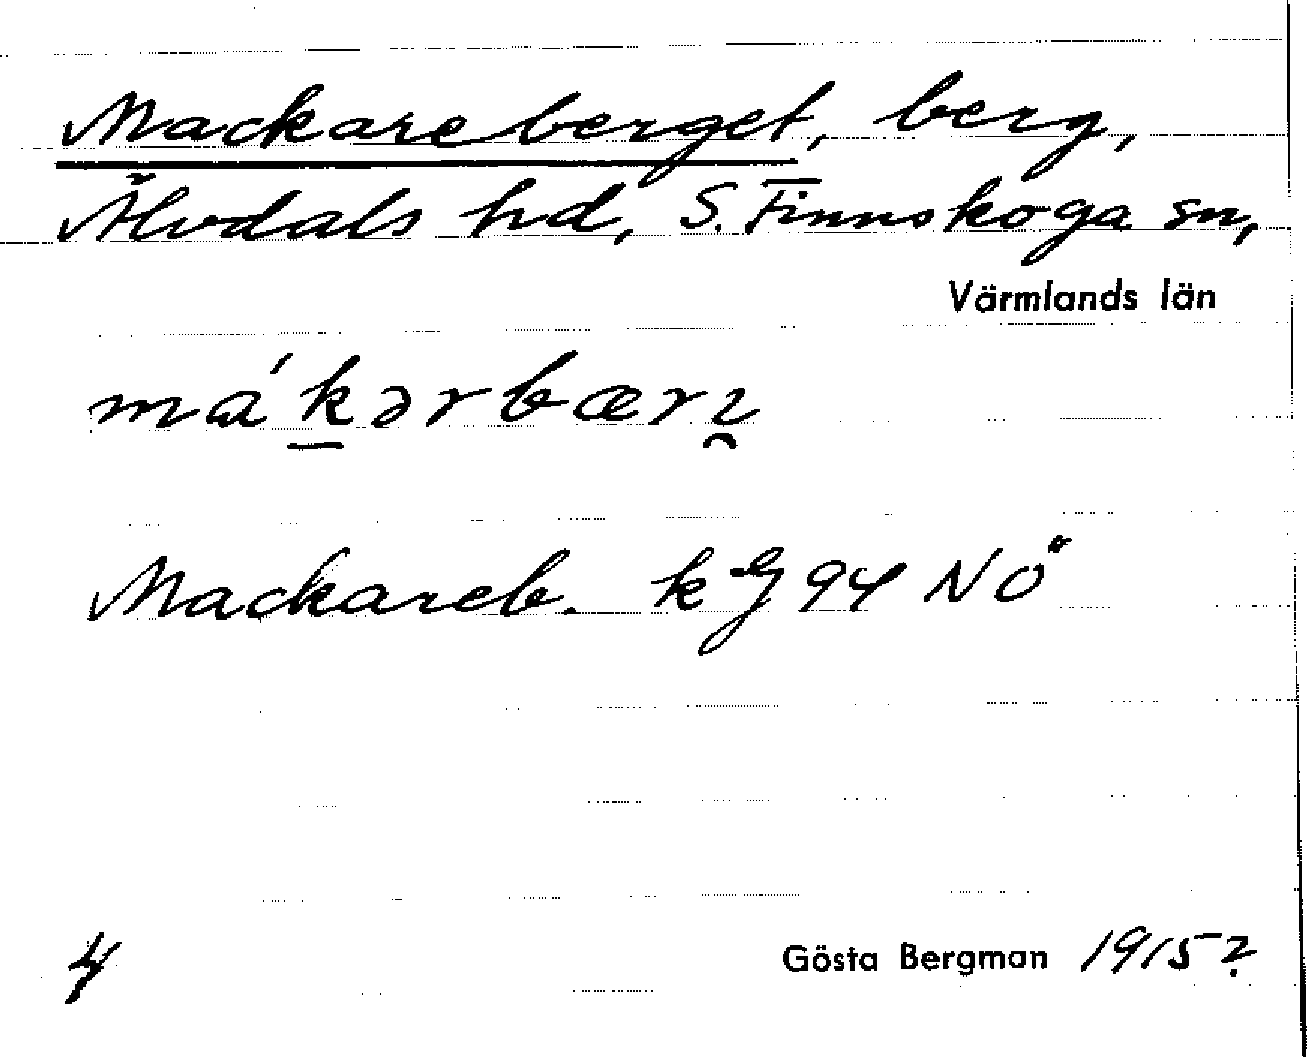 Mackareberget, berg,
Älvdals hd, S. Finnskoga sn,
Värmlands län
ma´kərbærɿ
Mackareb. kg 94 NÖ
4
Gösta Bergman 1915?